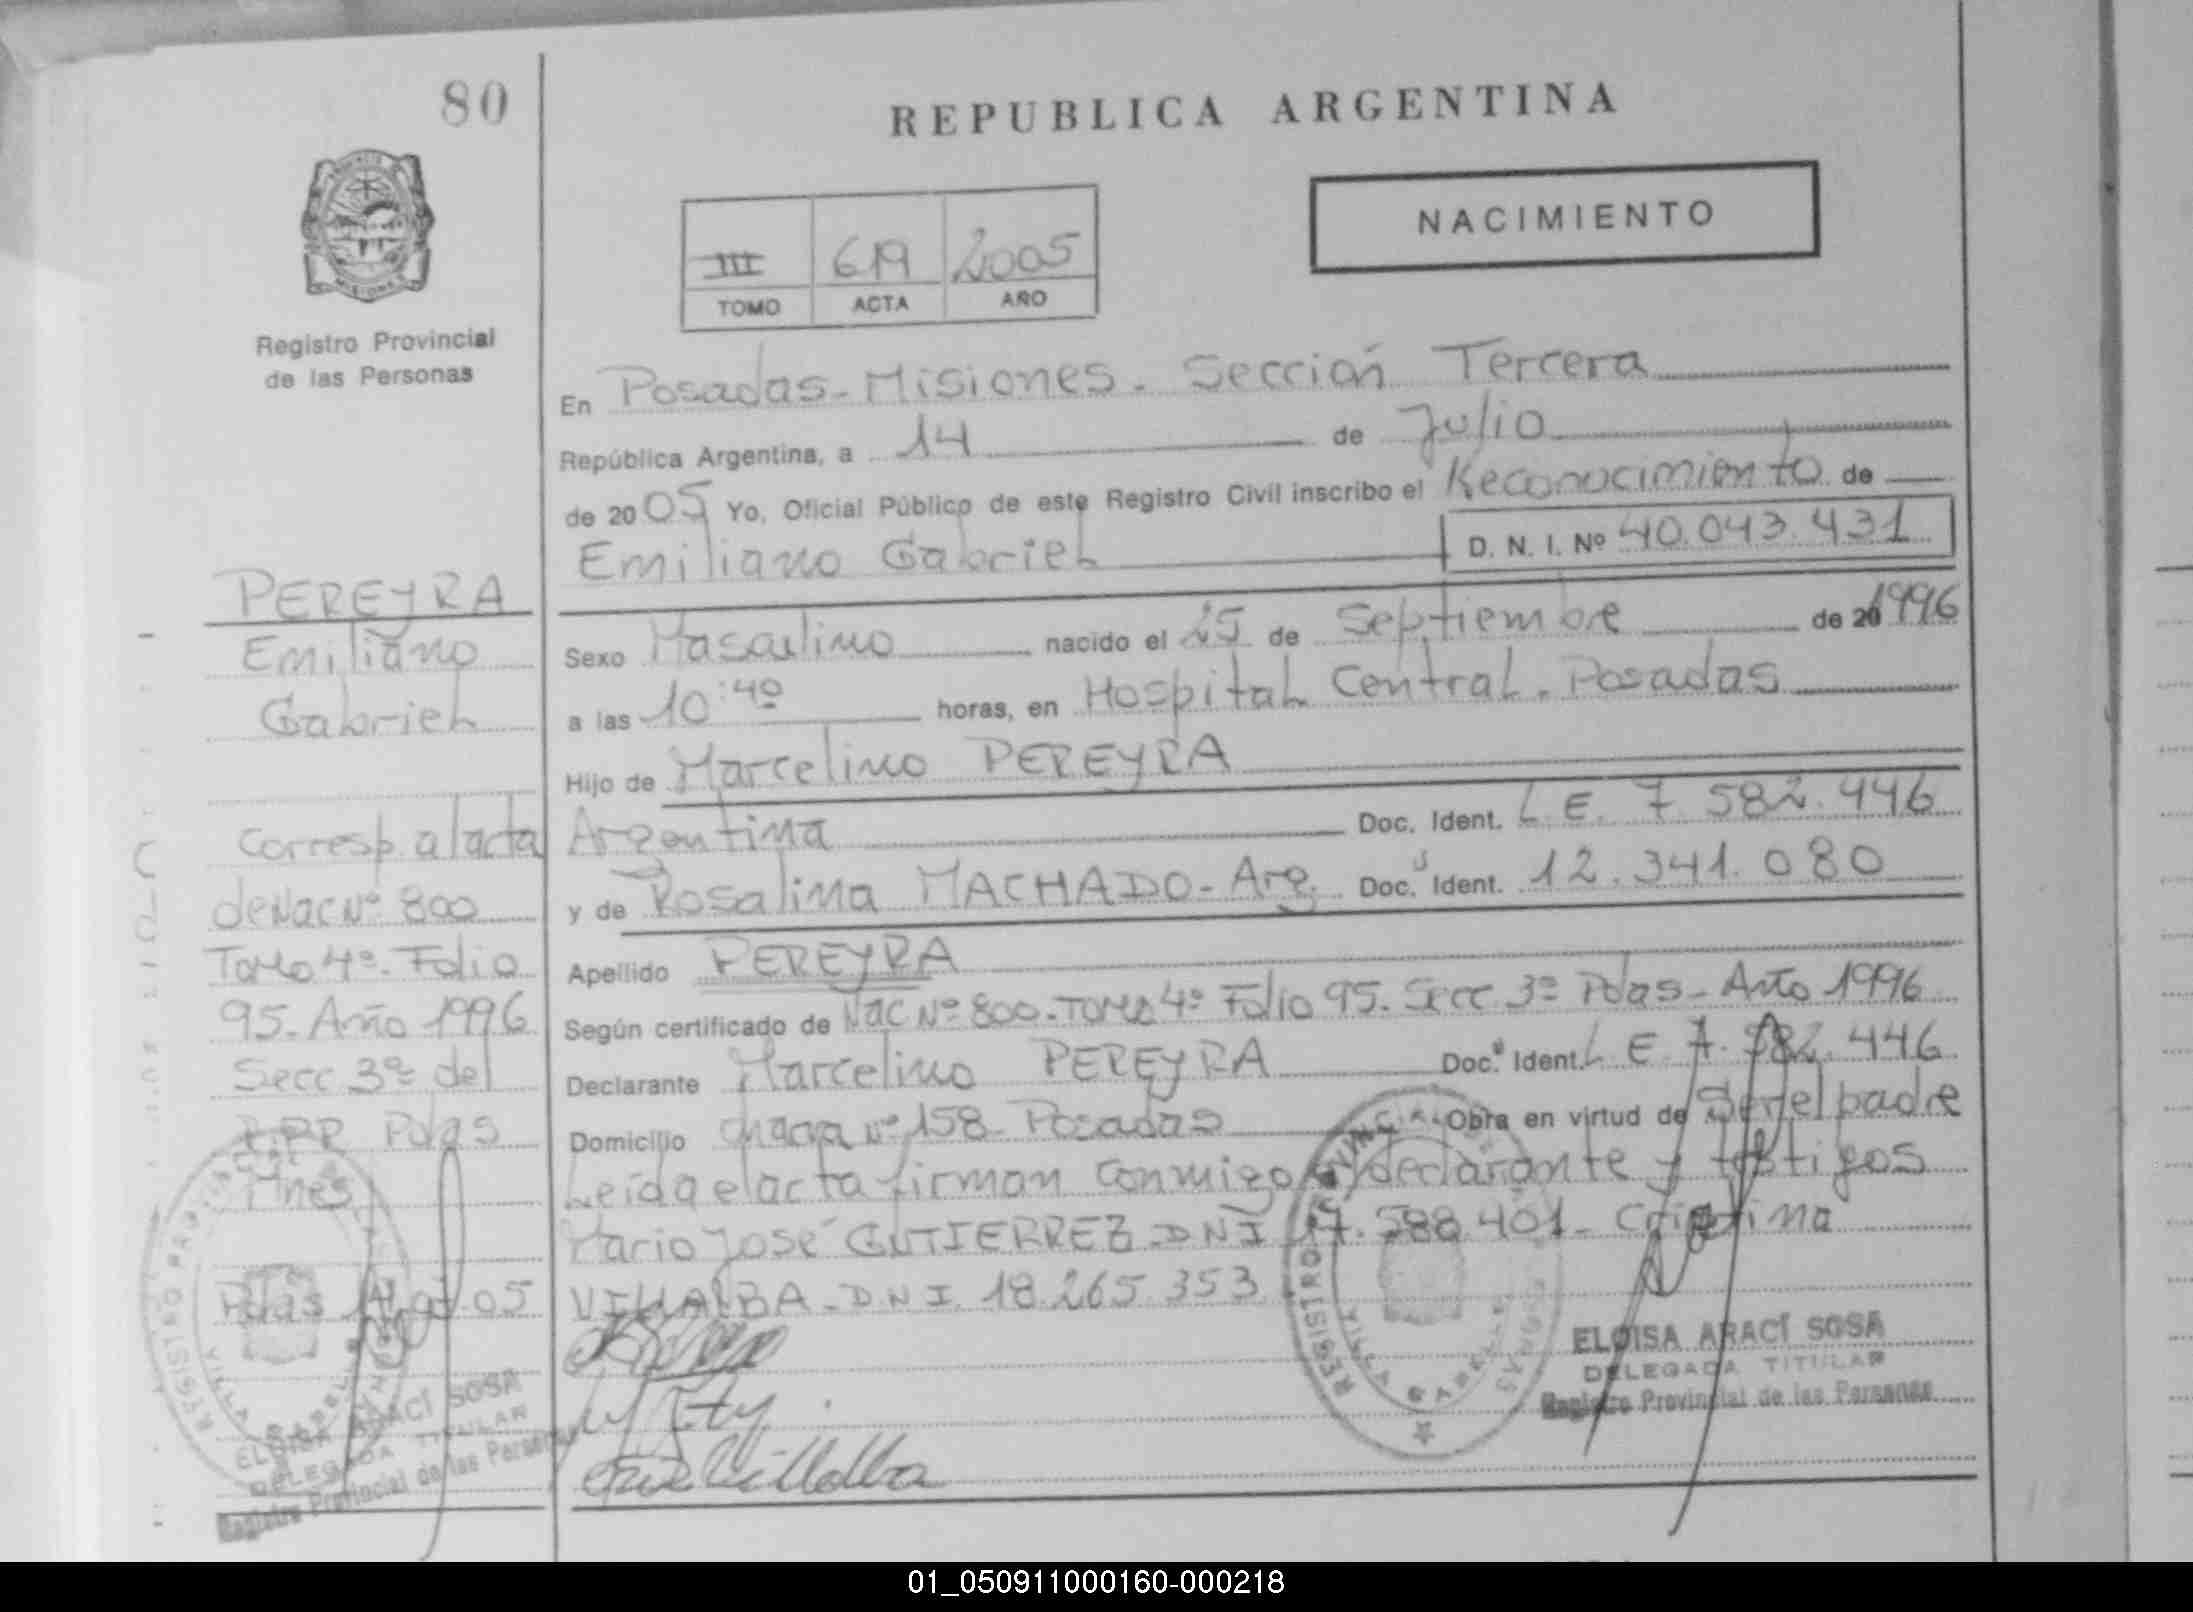 80
REPUBLICA ARGENTINA
NACIMIENTO
III 619 2005
TOMO ACTA AÑO
PROVINCIA
MISIONES
Registro Provincial
de las Personas
En Posadas-Misiones. Sección Tercera
República Argentina, a 14 de Julio
de 2005 Yo, Oficial Público de este Registro Civil inscribo el Reconocimiento de
Emiliano Gabriel D. N. I. Nº 40.043.431
Sexo Masculino nacido el 25 de Septiembre de 20 1996
a las 10:40 horas, en Hospital Central. Posadas
Hijo de Marcelino PEREYRA
Argentina Doc. Ident. L.E. 7.582.446
y de Rosalina MACHADO-Arg. Doc. Ident. 12.341.080
Apellido PEREYRA
Según certificado de Nac Nº 800-Tomo 4º Folio 95. Secc 3º Pdas-Año 1996
Declarante Marcelino PEREYRA Doc. Ident. L.E. 7.582.446
Domicilio chacra nº 158 Posadas Obra en virtud de Ser el padre
Leída el acta firman conmigo declarante y testigos
Mario José GUTIERREZ-DNI 17.588.401- Cristina
VILLALBA-DNI. 18.265.353
PEREYRA
Emiliano
Gabriel
Corresp. al acta
de Nac Nº 800
Tomo 4º. Folio
95. Año 1996
Secc 3º del
RPP Pdas
Mnes
Pdas 05
REGISTRO PROVINCIAL
VILLA CABELLO
ELOISA ARACÍ SOSA
DELEGADA TITULAR
Registro Provincial de las Personas
Villalba
REGISTRO PROVINCIAL DE PERSONAS
VILLA CABELLO
ELOISA ARACÍ SOSA
DELEGADA TITULAR
Registro Provincial de las Personas
01_050911000160-000218